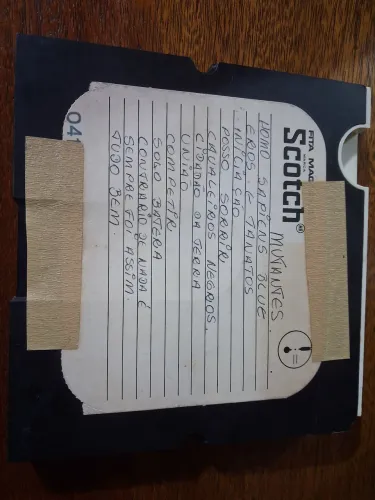 041
FITA MAG
MARCA
Scotch®
MUTANTES.
HOMO SAPIENS BLUE
EROS E TANATOS
INTUIÇAO
POSSO SORRIR,
CAVALEIROS NEGROS.
CIDADÃO DA TERRA
UNIÃO
COMPETIR
SOLO BATERA
CONTRARIO DE NADA É
SEMPRE FOI ASSIM.
TUDO BEM.